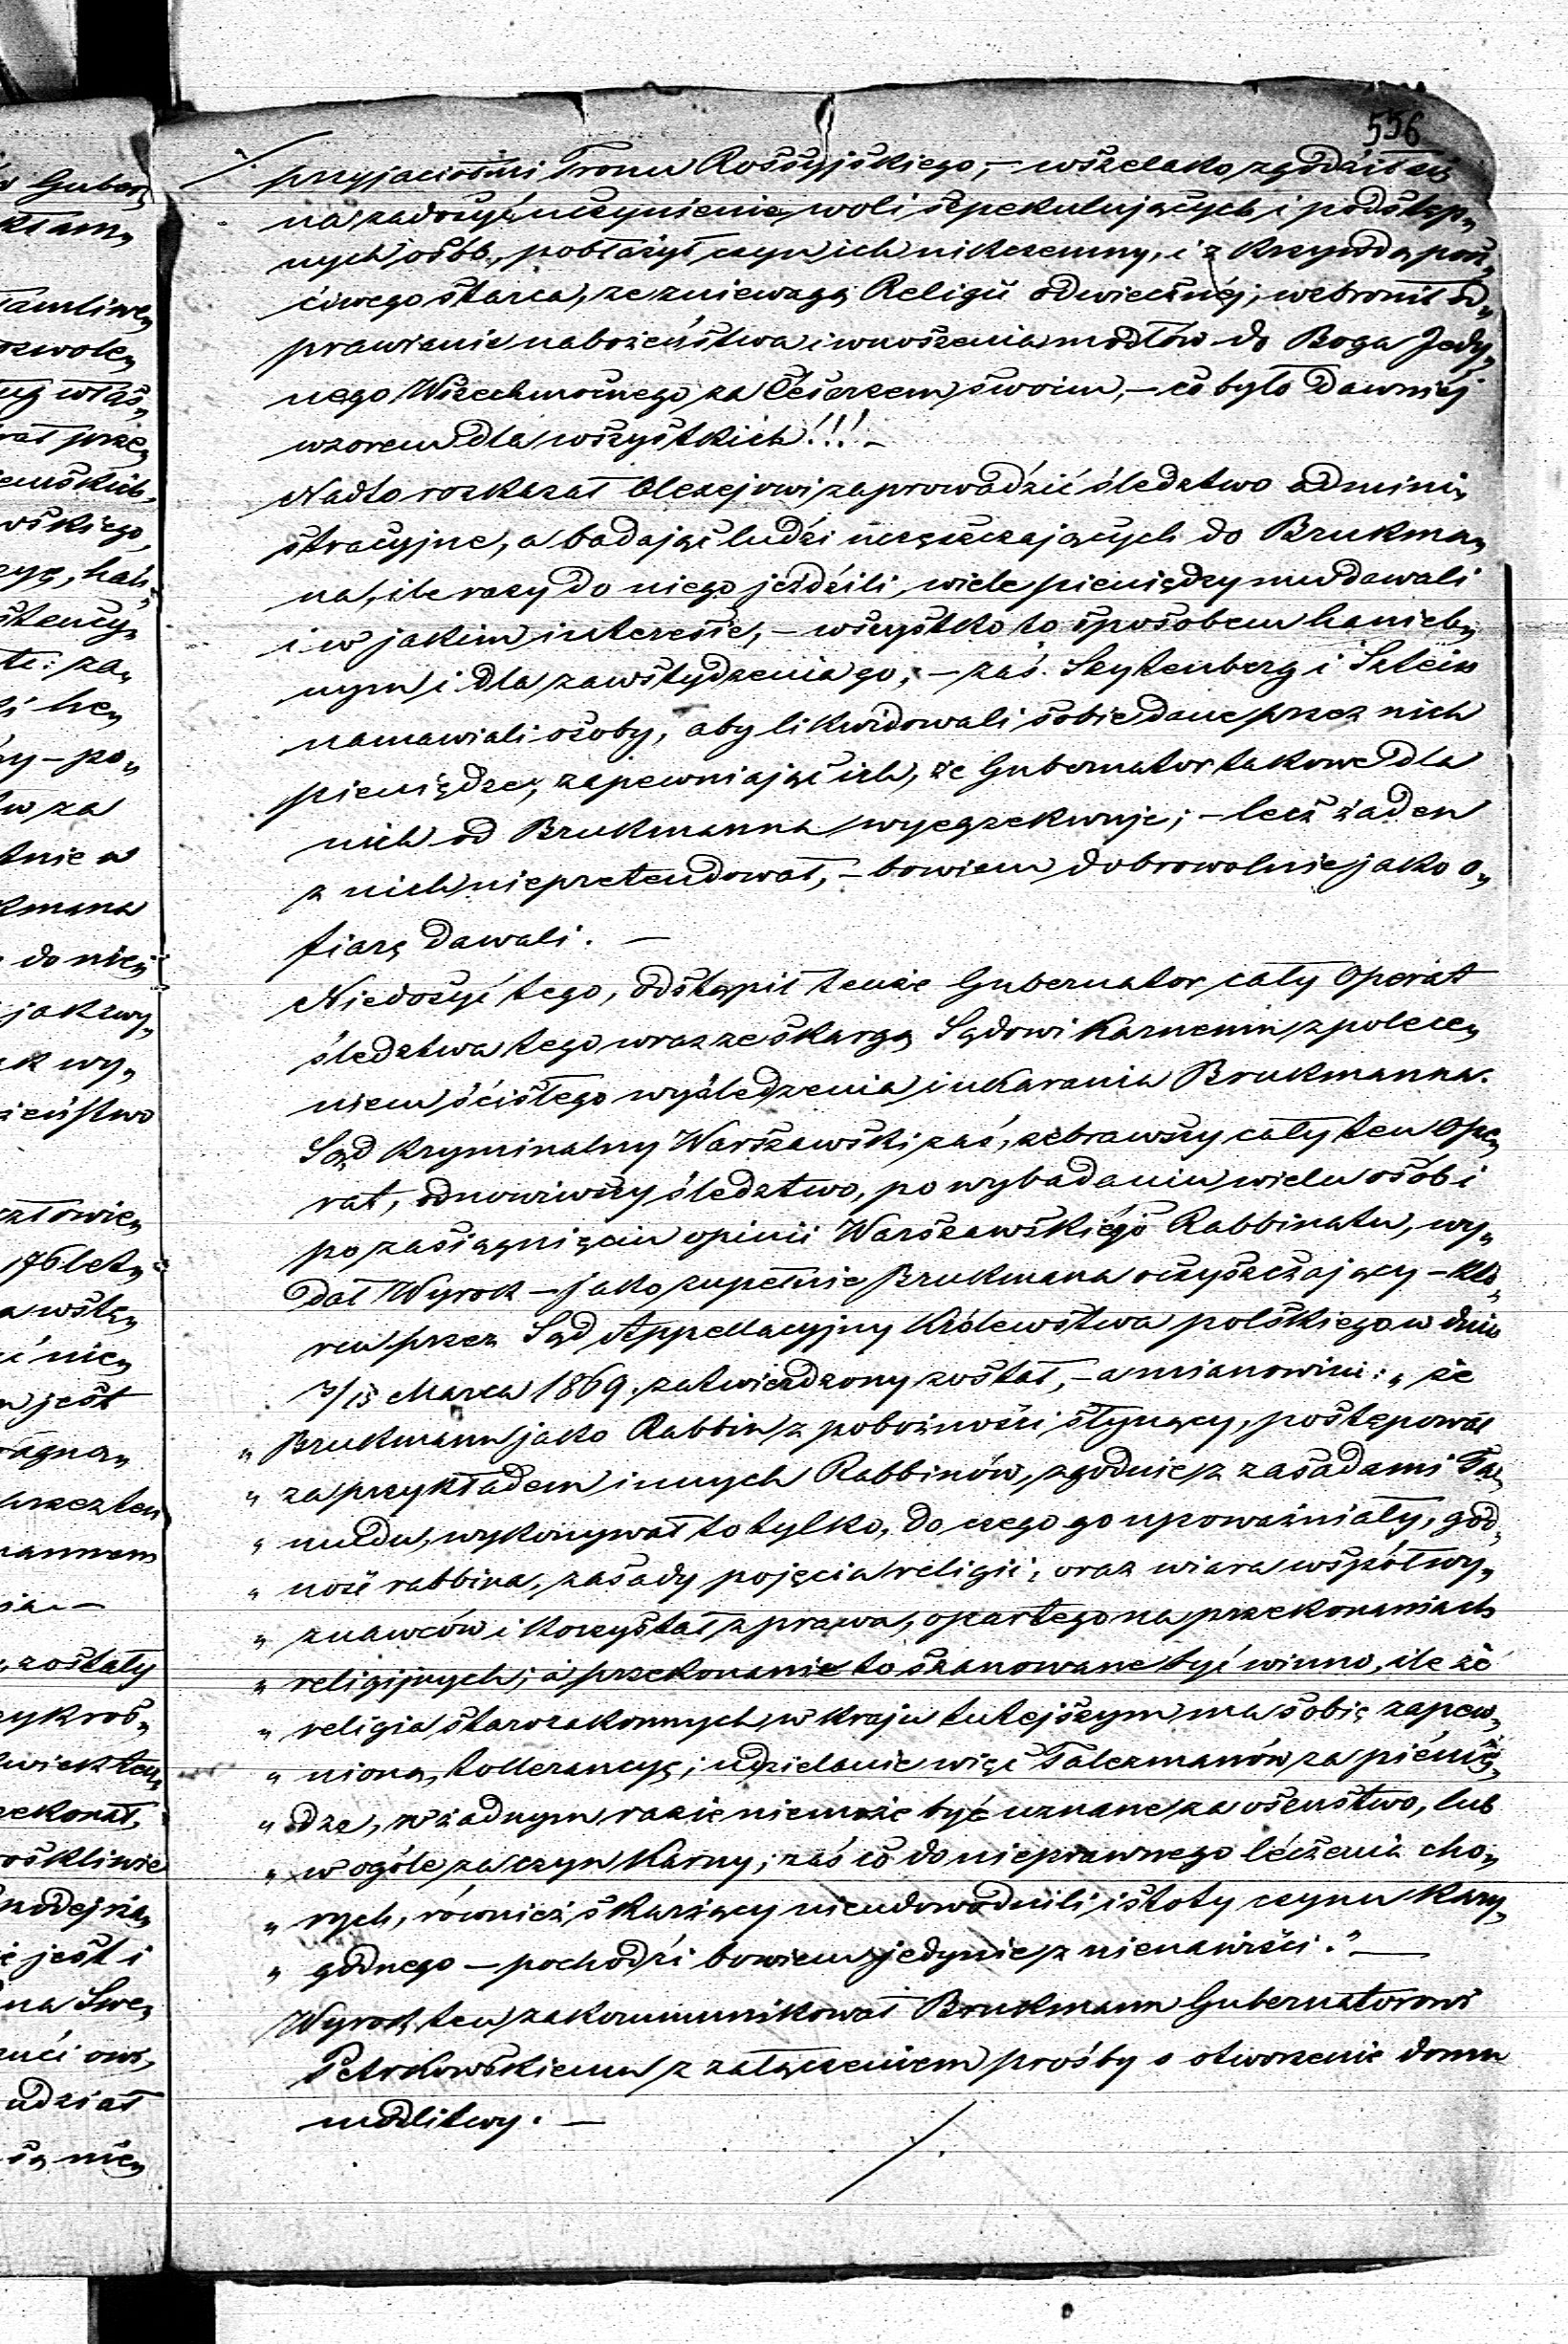 556
przyjaciołmi Tronu Rossyjskiego, – wszelako zgodził się
na zadosyć uczynienie woli spekulujących i podstęp„
nych osób, pobłażył czyn ich nikczemny, i z krzywdą pocz„
ciwego starca, ze zniewagą Religii odwiecznej, wzbronił od„
prawianie nabożeństwa i wnoszenia modłów do Boga Jedy„
nego Wszechmocnego za Cesarzem swoim, – co było dawniej
wzorem dla wszystkich!!! –
Nadto rozkazał Olezejowi zaprowadzić śledztwo admini„
stracyjne, a badając ludzi uczęszczających do Brukma„
na, ile razy do niego jeździli, wiele pieniędzy mu dawali
i w jakim interesie, – wszystko to sposobem hanieb„
nym i dla zawstydzenia go; – zaś Szytenberg i Sztein
namawiali osoby, aby likwidowali sobie dane przez nich
pieniądze, zapewniając ich, że Gubernator takowe dla
nich od Brukmanna wyegzekwuje; – lecz żaden
z nich niepretendował, – bowiem dobrowolnie jako o„
fiarę dawali. –
Niedosyć tego, odstąpił tenże Gubernator cały Operat
śledztwa tego wraz ze skargą Sądowi Karnemu z polece„
niem ścisłego wyśledzenia i ukarania Brukmanna.
Sąd Kryminalny Warszawski zaś, zebrawszy cały ten Ope„
rat, odnowiwszy śledztwo, po wybadaniu wielu osób i
po zasiągnięciu opinii Warszawskiego Rabbinatu, wy„
dał Wyrok – jako zupełnie Brukmana oczyszczający – któ„
ren przez Sąd Appellacyjny Królewstwa polskiego w dniu
3/15 Marca 1869. zatwierdzony został, – a mianowicie: „ że
„ Brukmann jako Rabbin z pobożności słynący, postępował
„ za przykładem innych Rabbinów, zgodnie z zasadami Tal„
„ mudu, wykonywał to tylko, do czego go upoważniały, god„
„ ność rabbina, zasady pojęcia religii, oraz wiara współwy„
„ znawców i korzystał z prawa, opartego na przekonaniach
„ religijnych; a przekonanie to szanowane być winno, ile że
„ religia starozakonnych w kraju tutejszym ma sobie zapew„
„ nioną tollerancyę; udzielanie więc Talezmanów za pienią„
„ dze, w żadnym razie niemoże być uznane za oszustwo, lub
„ w ogóle za czyn karny; zaś co do nieprawnego leczenia cho„
„ rych, również skarżący nieudowodnili istoty czynu kary„
„ godnego – pochodzi bowiem jedynie z nienawiści." –
Wyrok ten zakommunikował Brukmann Gubernatorowi
Petrokowskiemu z załączeniem prośby o otworzenie domu
modlitwy. –